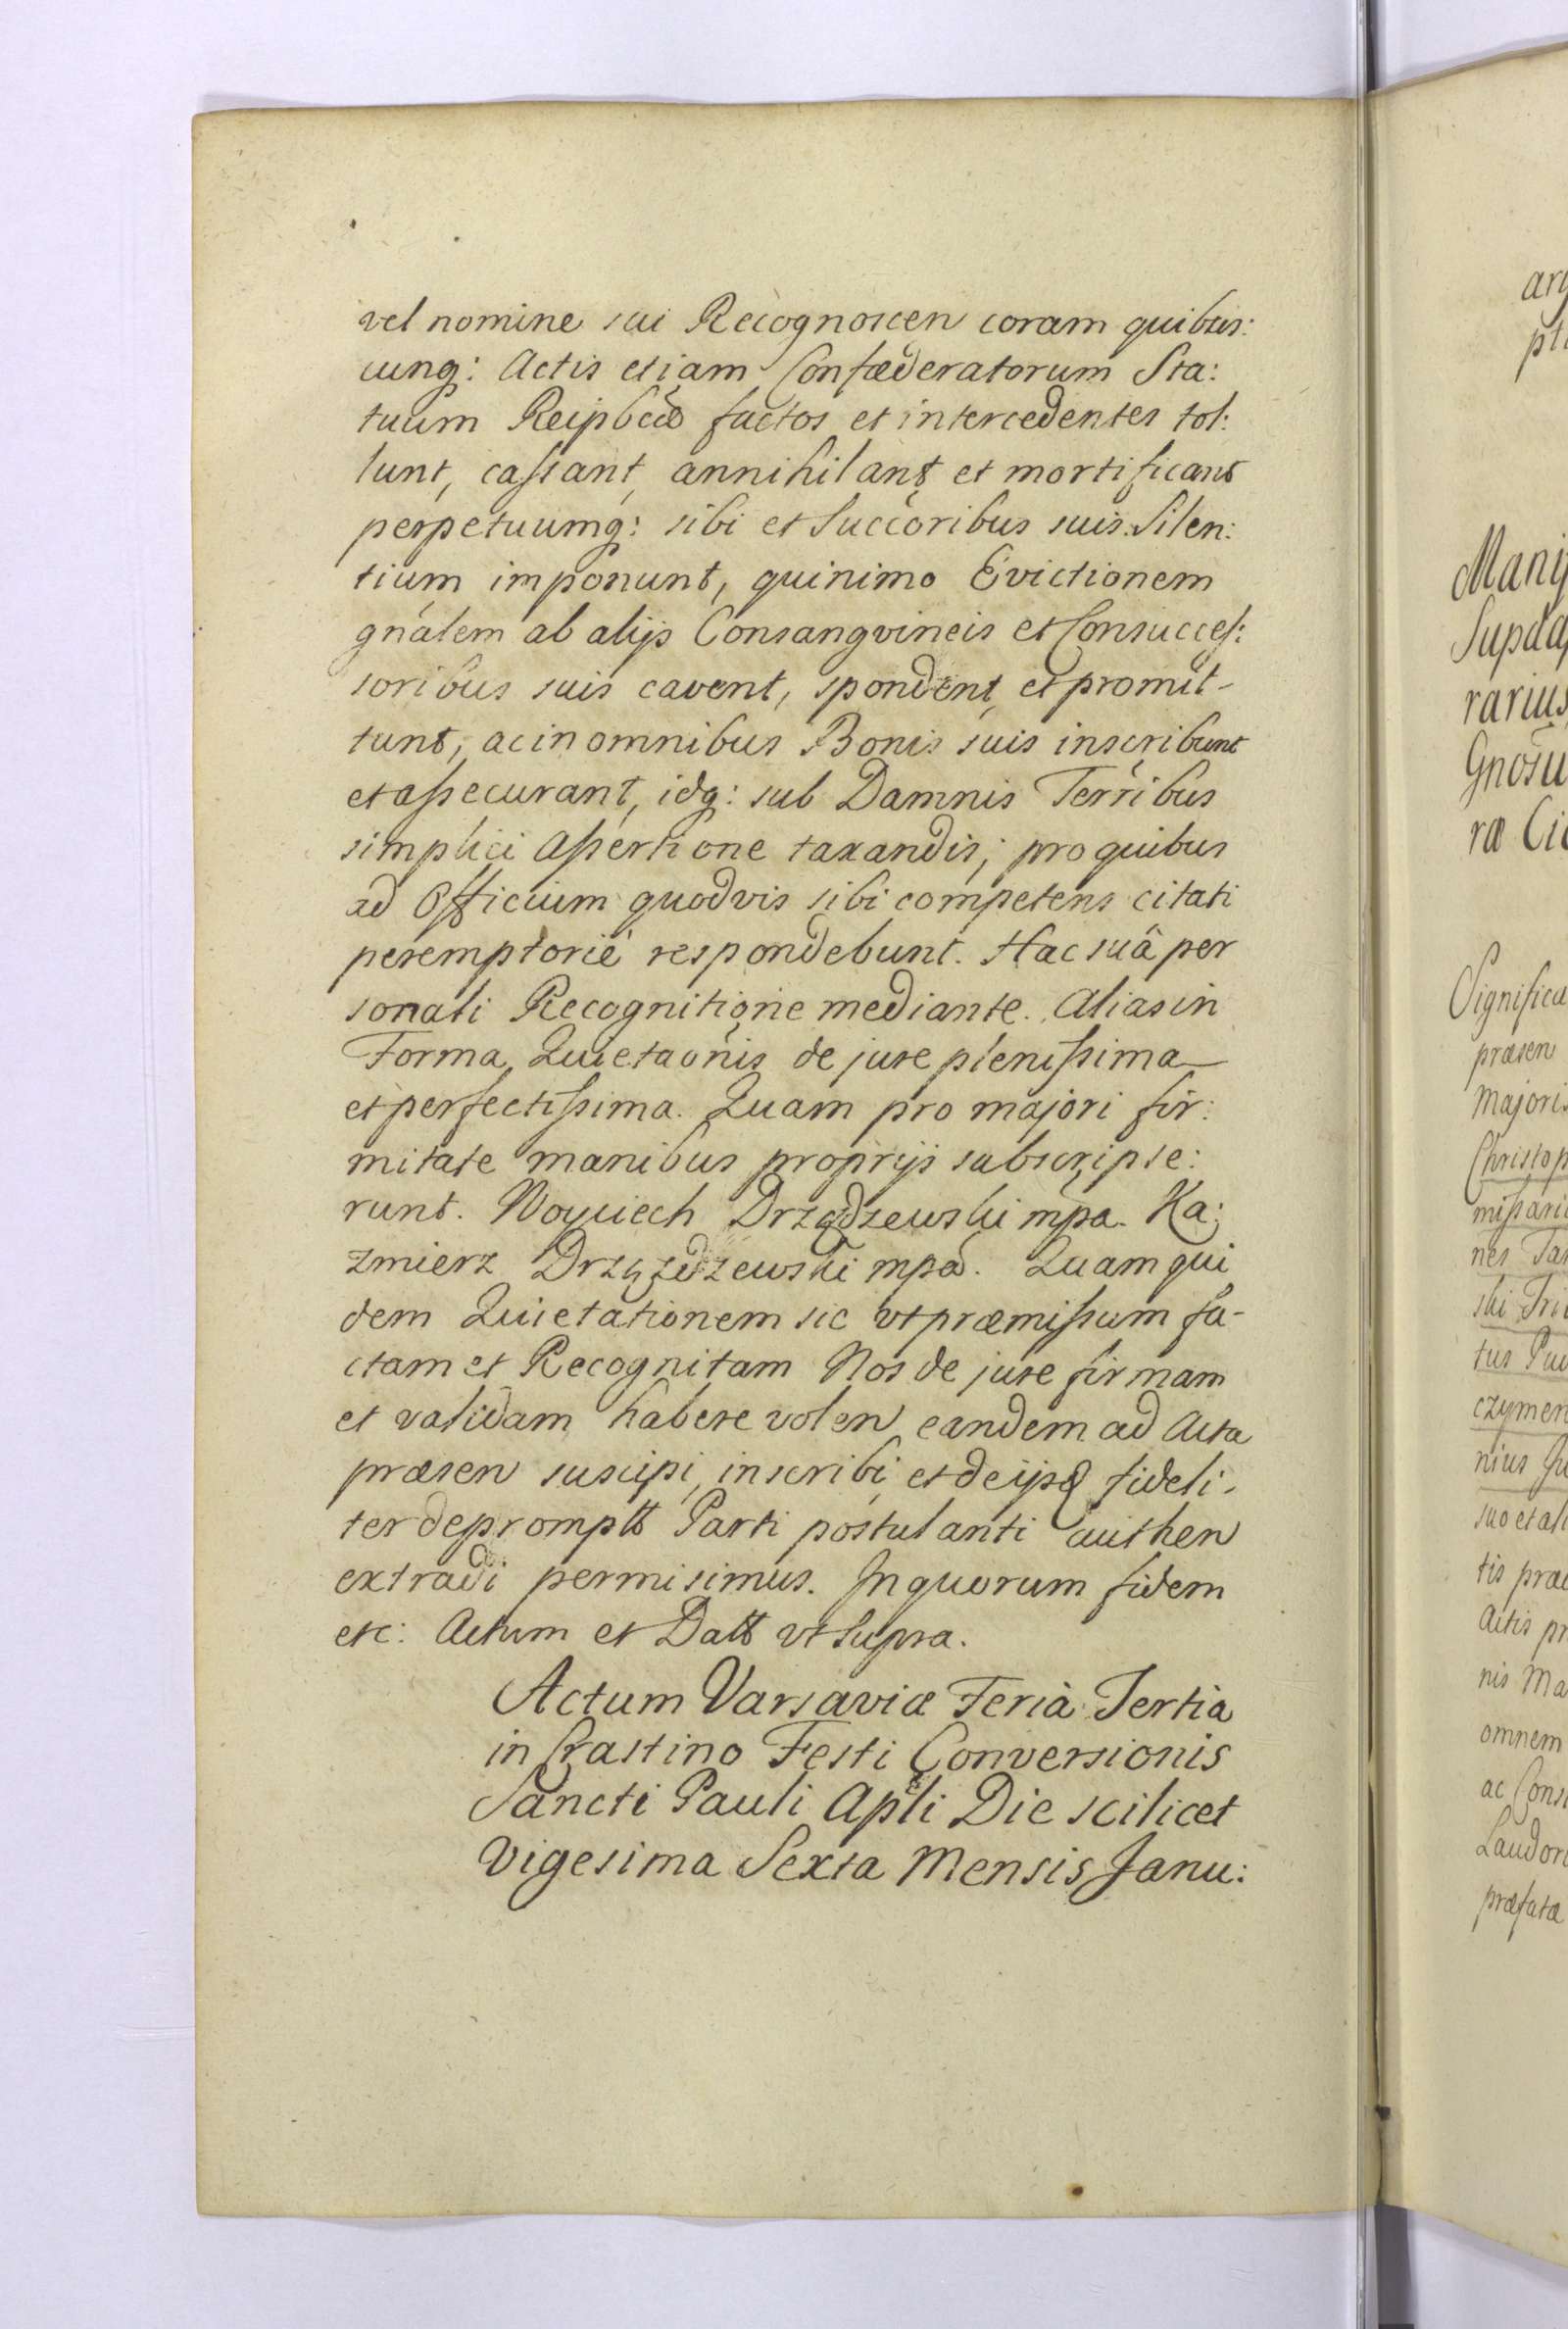 vel nomine sui Recognoscen coram quibus:
cunq: Actis etiam Confæderatorum Sta:
tuum Reipbcæ factos et intercedentes tol:
lunt, cassant, annihilant et mortificant
perpetuumq: sibi et Succoribus suis Silen:
tium imponunt, quinimo Evictionem
gnalem ab alijs Consangvineis et Consucces:
soribus suis cavent, spondent, et promit-
tunt, ac in omnibus Bonis suis inscribunt
et assecurant, idq: sub Damnis Terribus
simplici Assertione taxandis; pro quibus
ad Officium quodvis sibi competens citati
peremptorie respondebunt. Hac suâ per
sonali Recognitione mediante. Alias in
Forma Quietaonis de jure plenissima
et perfectissima. Quam pro majori fir:
mitate manibus proprijs subscripse:
runt. Woyciech Drządzewski mpa. Ka:
zmierz mpa. Quam qui
dem Quietationem sic ut præmissum fa-
ctam et Recognitam Nos de jure firmam
et validam habere volen eandem ad Acta
præsen suscipi, inscribi, et de ijsd fideli-
ter deprompt Parti postulanti authen
extradi permisimus. In quorum fidem
etc: Actum et Datt ut supra.
Actum Varsaviæ Feria Tertia
in Crastino Festi Conversionis
Sancti Pauli Apli Die scilicet
Vigesima Sexta Mensis Janu:
ary
Manij
rarius
Gnosu
ræ
Significa
præsen
Majoris
Christop
nius
suo et ali
tis præ
Actis pr
nis Ma
omnem
ac Cons
Laudor
præfatæ